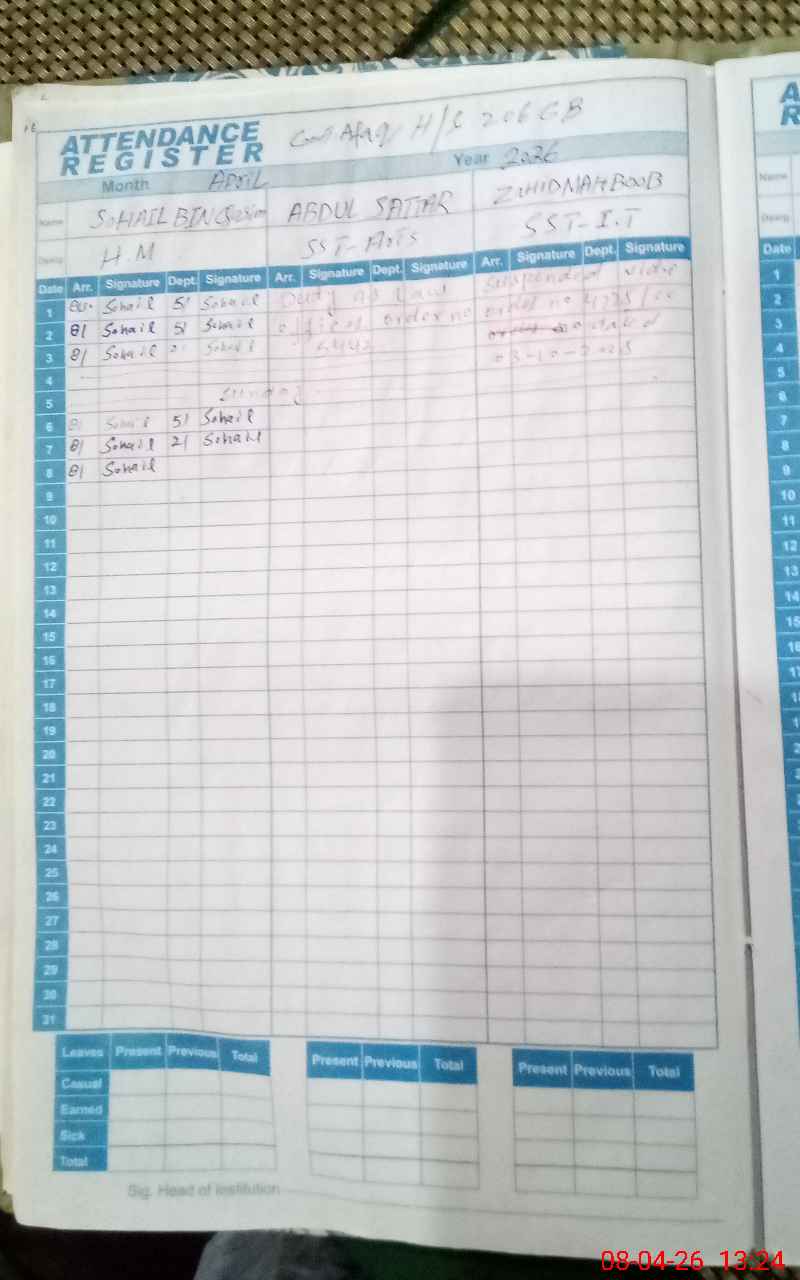 ATTENDANCE
REGISTER
H/S 206 GB
Month APRIL Year 2026
Name SOHAIL BIN ABDUL SATTAR ZAHID MAHBOOB
Desig. H.M SST-Arts SST-I.T
Date Arr. Signature Dept. Signature Arr. Signature Dept. Signature Arr. Signature Dept. Signature
1 Sohail 5/ Sohail Duty as Law Suspended vide
2 8/ Sohail 5/ Sohail office order no order no
3 8/ Sohail 2/ Sohail 5442 dated
4 03-10-2025
5 Sunday
6 8/ Sohail 5/ Sohail
7 8/ Sohail 2/ Sohail
8 8/ Sohail
9
10
11
12
13
14
15
16
17
18
19
20
21
22
23
24
25
26
27
28
29
30
31
Leaves Present Previous Total Present Previous Total Present Previous Total
Casual
Earned
Sick
Total
Sig. Head of Institution
A
R
Name
Desig.
Date
1
2
3
4
5
6
7
8
9
10
11
12
13
14
15
16
08-04-26 13:24